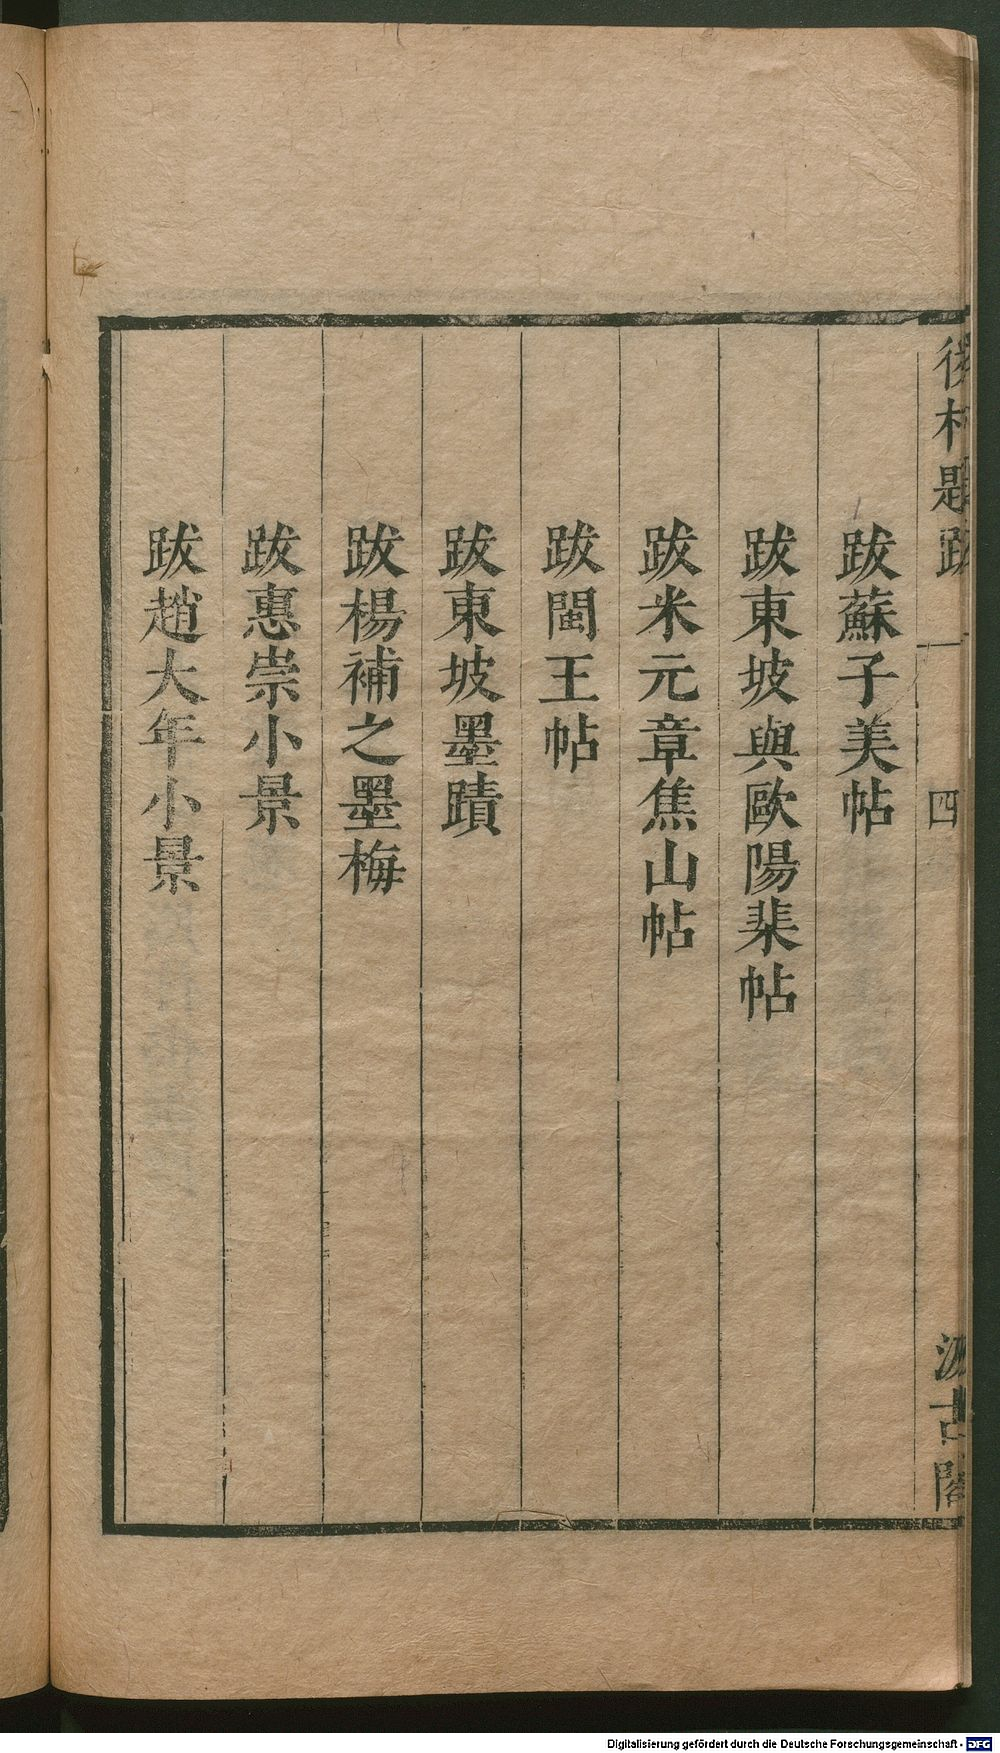 後村題跋 一 四 汲古閣
跋蘇子美帖
跋東坡與歐陽棐帖
跋米元章焦山帖
跋閩王帖
跋東坡墨蹟
跋楊補之墨梅
跋惠崇小景
跋趙大年小景
Digitalisierung gefördert durch die Deutsche Forschungsgemeinschaft - DFG